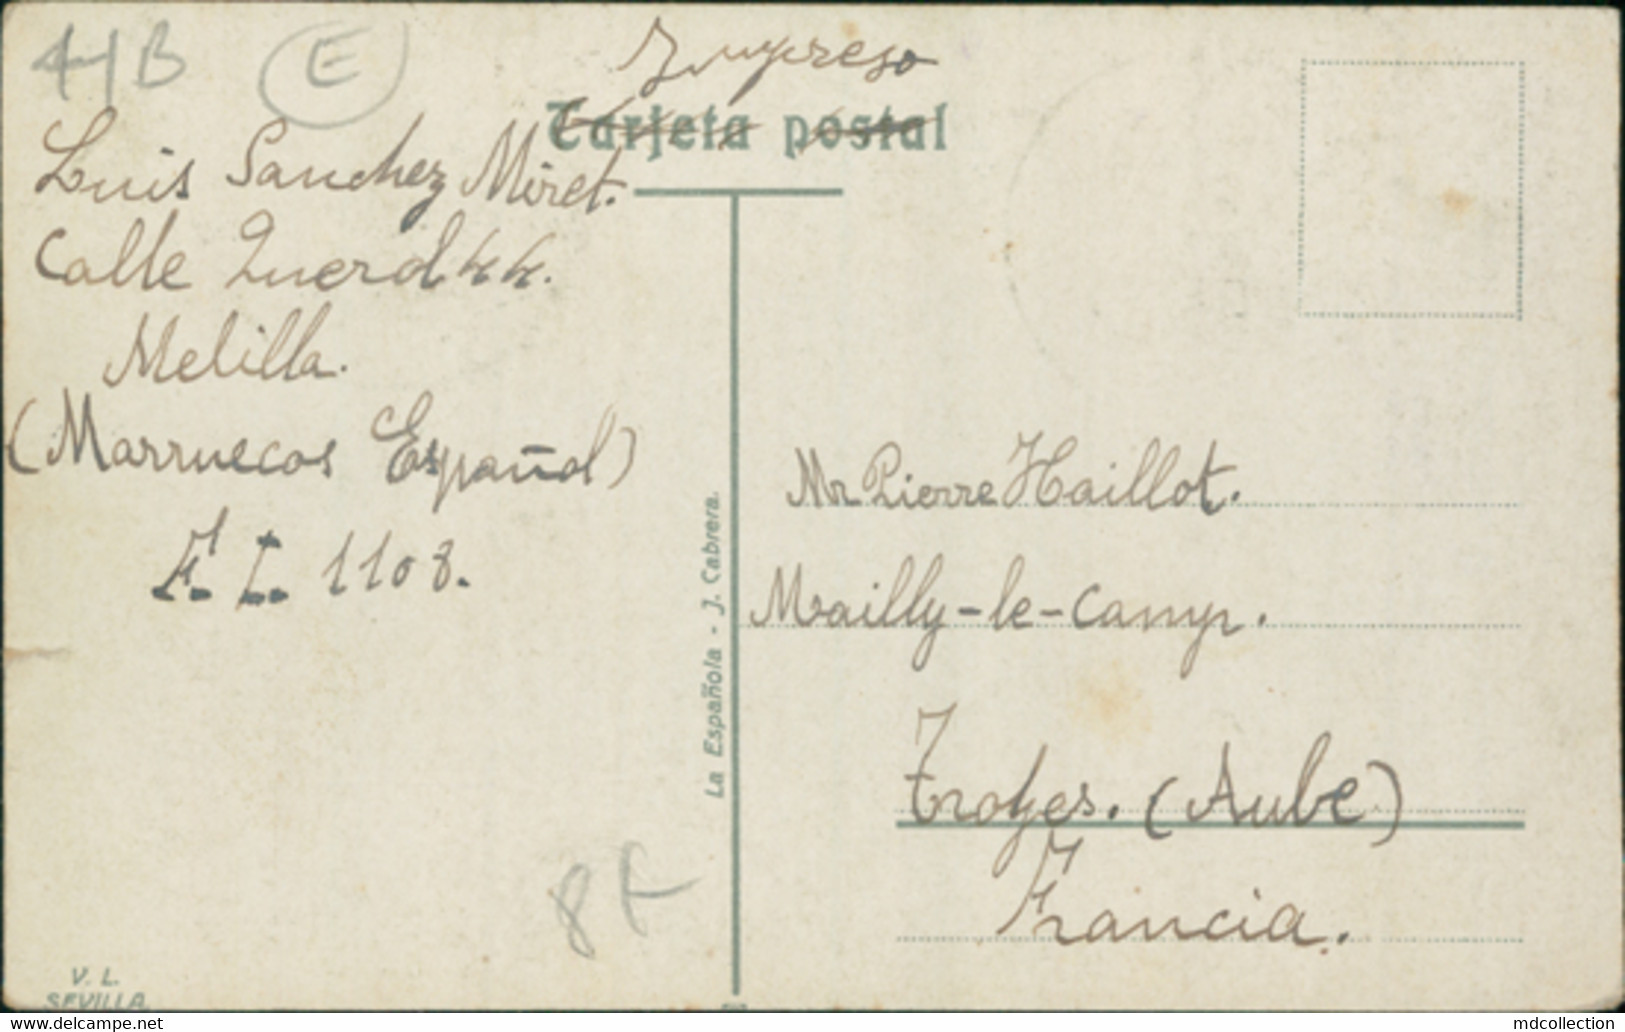 41B E
Impreso
Tarjeta postal
Luis Sanchez Miret.
Calle Querol 44.
Melilla.
(Marruecos Español)
F. L. 1108.
La Española - J. Cabrera.
Mr Pierre Haillot.
Mailly-le-Camp.
Troyes. (Aube)
Francia.
8F
V. L.
SEVILLA
mdcollection